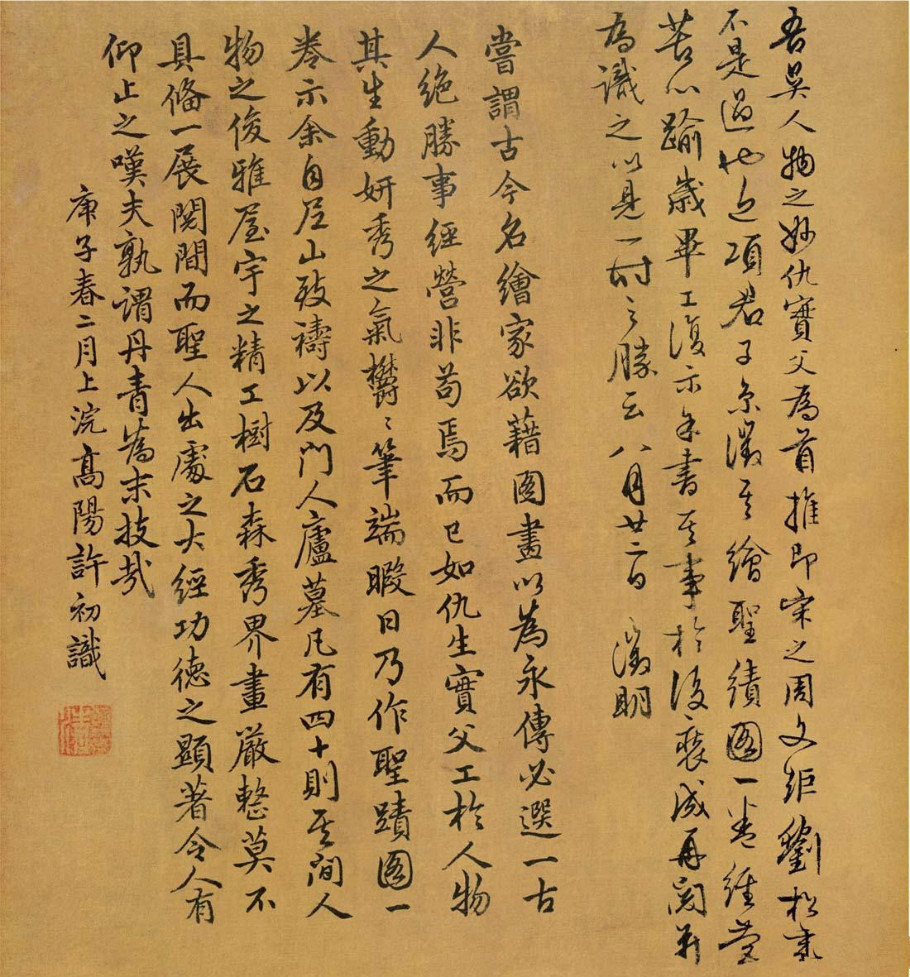 吾吴人物之妙仇實父為首推即宋之周文矩劉松年
不是過也近項君子京徵其繪聖績圖一卷經營
苦心踰歲畢工復示余書其事於後裝成再閱并
為識之以見一時之勝云八月廿二日徵明
嘗謂古今名繪家欲藉圖畫以為永傳必選一古
人絶勝事經營非苟焉而已如仇生實父工於人物
其生動妍秀之氣欝〻筆端暇日乃作聖蹟圖一
卷示余自尼山致禱以及門人廬墓凡有四十則其間人
物之俊雅屋宇之精工樹石森秀界畫嚴整莫不
具俻一展閱間而聖人出處之大經功德之顯著令人有
仰止之嘆夫孰謂丹青為末技哉
庚子春二月上浣高陽許初識